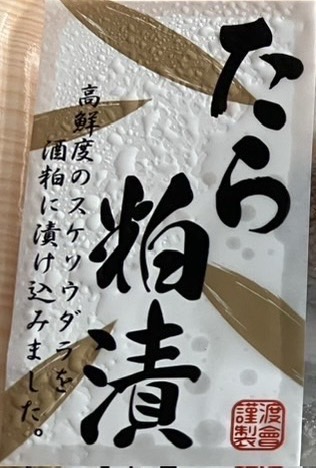 たら
粕漬
高鮮度のスケソウダラを
酒粕に漬け込みました。
渡會
謹製